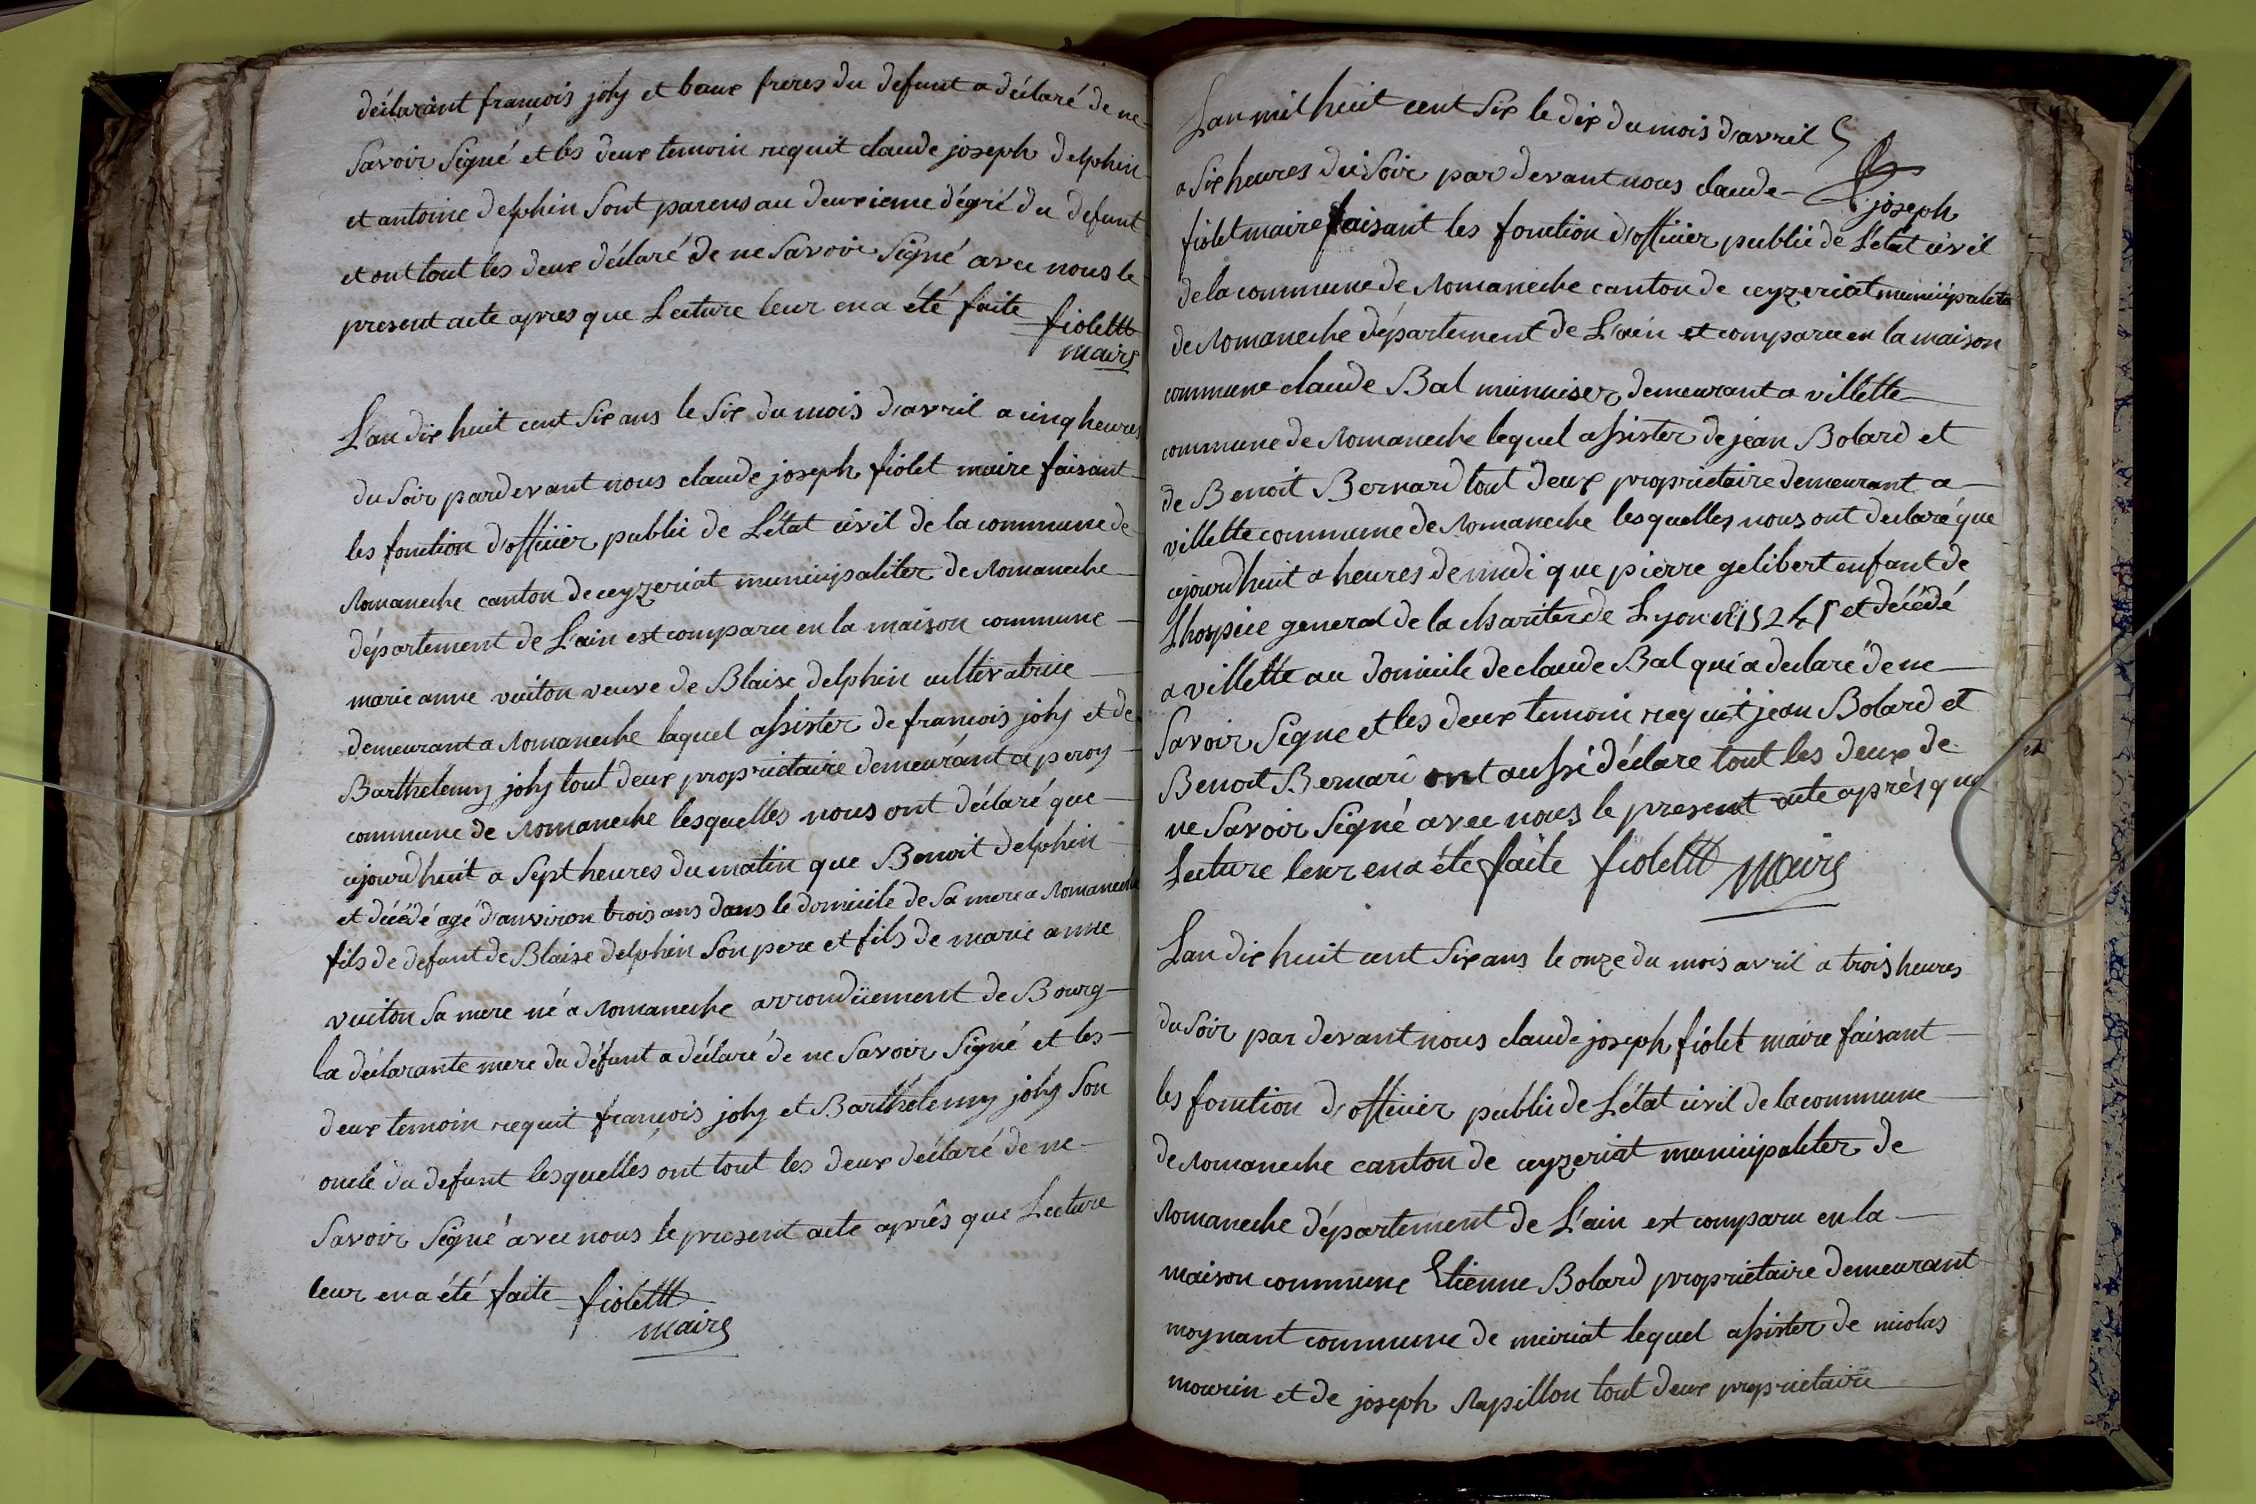 déclarant françois joly et beaux freres du defunt a déclaré de ne
Savoir Signé et les deux temoin requit claude joseph delphin
et antoine delphin Sont parens au deuxieme dégré du defunt
et ont tout les deux déclaré de ne Savoir Signé avec nous le
present acte apres que Lecture leur en a été faite fiolet
maire
L'an dix huit cent Six ans le Six du mois d'avril a cinq heures
du Soir pardevant nous claude joseph fiolet maire faisant
les fonction d'officier public de L'état civil de la commune de
Romaneche canton de ceyzeriat municipaliter de Romaneche
département de L'ain est comparu en la maison commune
marie anne vuiton veuve de Blaise delphin cultivatrice
demeurant a Romaneche laquel assister de francois joly et de
Barthelemy joly tout deux propriétaire demeurant a peroy
commune de Romaneche lesquelles nous ont déclaré que
ajourdhuit a Sept heures du matin que Benoit delphin
et décédé agé d'anviron trois ans dans le domicile de Sa mere a Romaneche
fils de defunt de Blaise delphin Son pere et fils de marie anne
vuiton Sa mere né a Romaneche arrondiiement de Bourg
la déclarante mere du défunt a déclaré de ne Savoir Signé et les
deux temoin requit françois joly et Barthelemy joly Son
oncle du defunt lesquelles ont tout les deux déclaré de ne
Savoir Signé avec nous le present acte après que Lecture
leur en a été faite fiolet
maire
Lan mil huit cent Six le dix du mois d'avril
a Six heures du Soir par devant nous claude
joseph
fiolet maire faisant les fonction d'officier public de L'état civil
de la commune de Romaneche canton de ceyzeriat municipalite
de Romaneche département de L'ain et comparu en la maison
commune claude Bal menuiser demeurant a villette
commune de Romaneche lequel assister de jean Bolard et
de Benoit Bernard tout deux proprietaire demeurant a
villette commune de Romaneche lesquelles nous ont declaré que
ajourdhuit a heures de midi que pierre gelibert enfant de
Lhospice general de la chariter de Lyon n 15245 et décédé
a villette au domicile de claude Bal qui a declaré de ne
Savoir Signe et les deux temoin requit jean Bolard et
Benoit Bernard ont aussi déclare tout les deux de
ne Savoir Signé avec nous le present acte après que
Lecture leur en a été faite fiolet maire
Lan dix huit cent Six ans le onze du mois avril a trois heures
du Soir par devant nous claude joseph fiolet maire faisant
les fonction d'officier public de L'état civil de la commune
de Romaneche canton de ceyzeriat municipaliter de
Romaneche département de L'ain est comparu en la
maison commune Etienne Bolard propriétaire demeurant
moynant commune de meiriat lequel assister de nicolas
mourin et de joseph Rapillon tout deux proprietaire